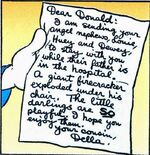 Dear Donald:
I am sending your
angel nephews, Louie,
Huey and Dewey,
to stay with you
while their father is
in the hospital.
A giant firecracker
exploded under his
chair. The little
darlings are SO
playful. I hope you
enjoy them.
your cousin,
Della.